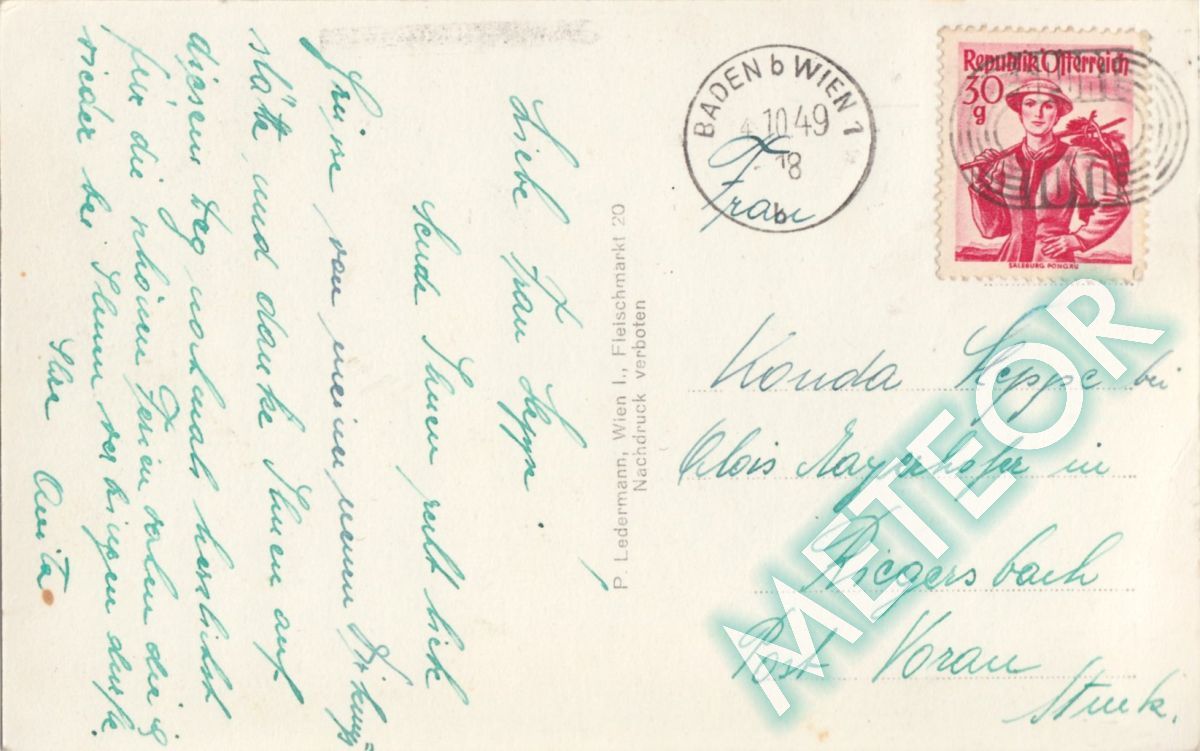 Liebe Frau Heppe!
Sende Ihnen recht liebe
Grüsse von meiner neuen Wirkungs=
stätte und danke Ihnen auf
diesem Weg nochmals herzlichst
für die schönen Ferien in die ich
wieder bei Ihnen verbringen durfte.
Ihre Anita
P. Ledermann, Wien I., Fleischmarkt 20
Nachdruck verboten
BADEN b WIEN 1
4.10.49
-18
b
Republik Österreich
30
g
SALZBURG PONGAU
Frau
Konda Heppe bei
Alois Mayerhofer in
Riegersbach
Post Vorau
Stmk.
METEOR